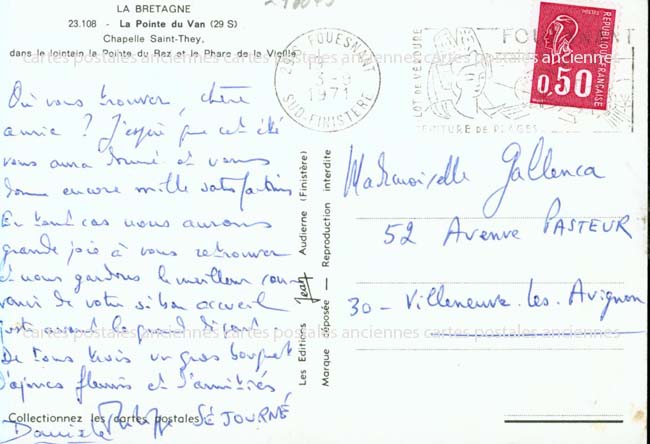 LA BRETAGNE
23.108 - La Pointe du Van (29 S)
Chapelle Saint-They,
dans le lointain la Pointe du Raz et le Phare de la Vieille
cartes postales anciennes cartes postales anciennes cartes postales anciennes
Où vous trouver, chère
amie ? J'espère que cet été
vous aura donné et vous
donne encore mille satisfactions
En tout cas nous aurons
grande joie à vous retrouver
et nous gardons le meilleur souve-
nir de votre si bon accueil
juste avant le grand départ
De tous trois un gros bouquet
d'ajoncs fleuris et d'amitiés
Philippe SÉJOURNÉ
Collectionnez les cartes postales
Les Editions Jean Audierne (Finistère)
Marque déposée — Reproduction interdite
FOUESNANT
1971
SUD-FINISTERE
FOUESNANT
ILOT DE VERDURE
CEINTURE DE PLAGES
REPUBLIQUE FRANÇAISE
0,50
Mademoiselle Gallenca
52 Avenue PASTEUR
30 - Villeneuve. les. Avignon
cartes postales anciennes cartes postales anciennes cartes postales anciennes